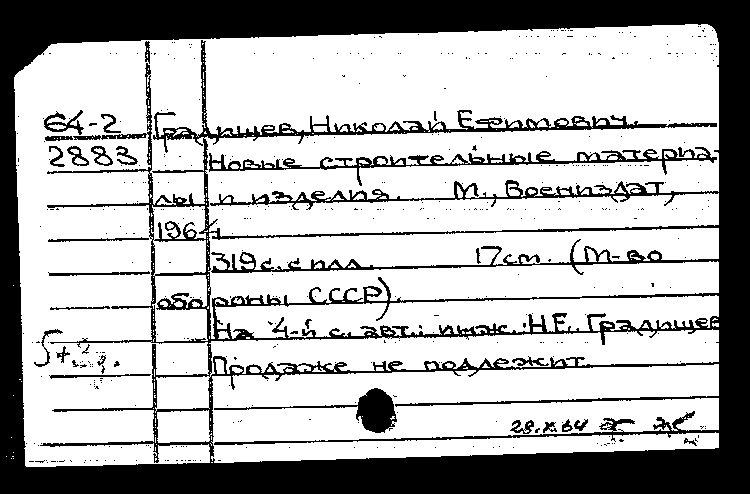 64-2 Градищев, Николай Ефимович.
2883 Новые строительные материа-
лы и изделия. М., Воениздат,
1964
319 с. с илл. 17 cm. (М-во
обороны СССР).
На 4-й с. авт.: инж. Н.Е. Градищев
Продаже не подлежит.
28.X.64